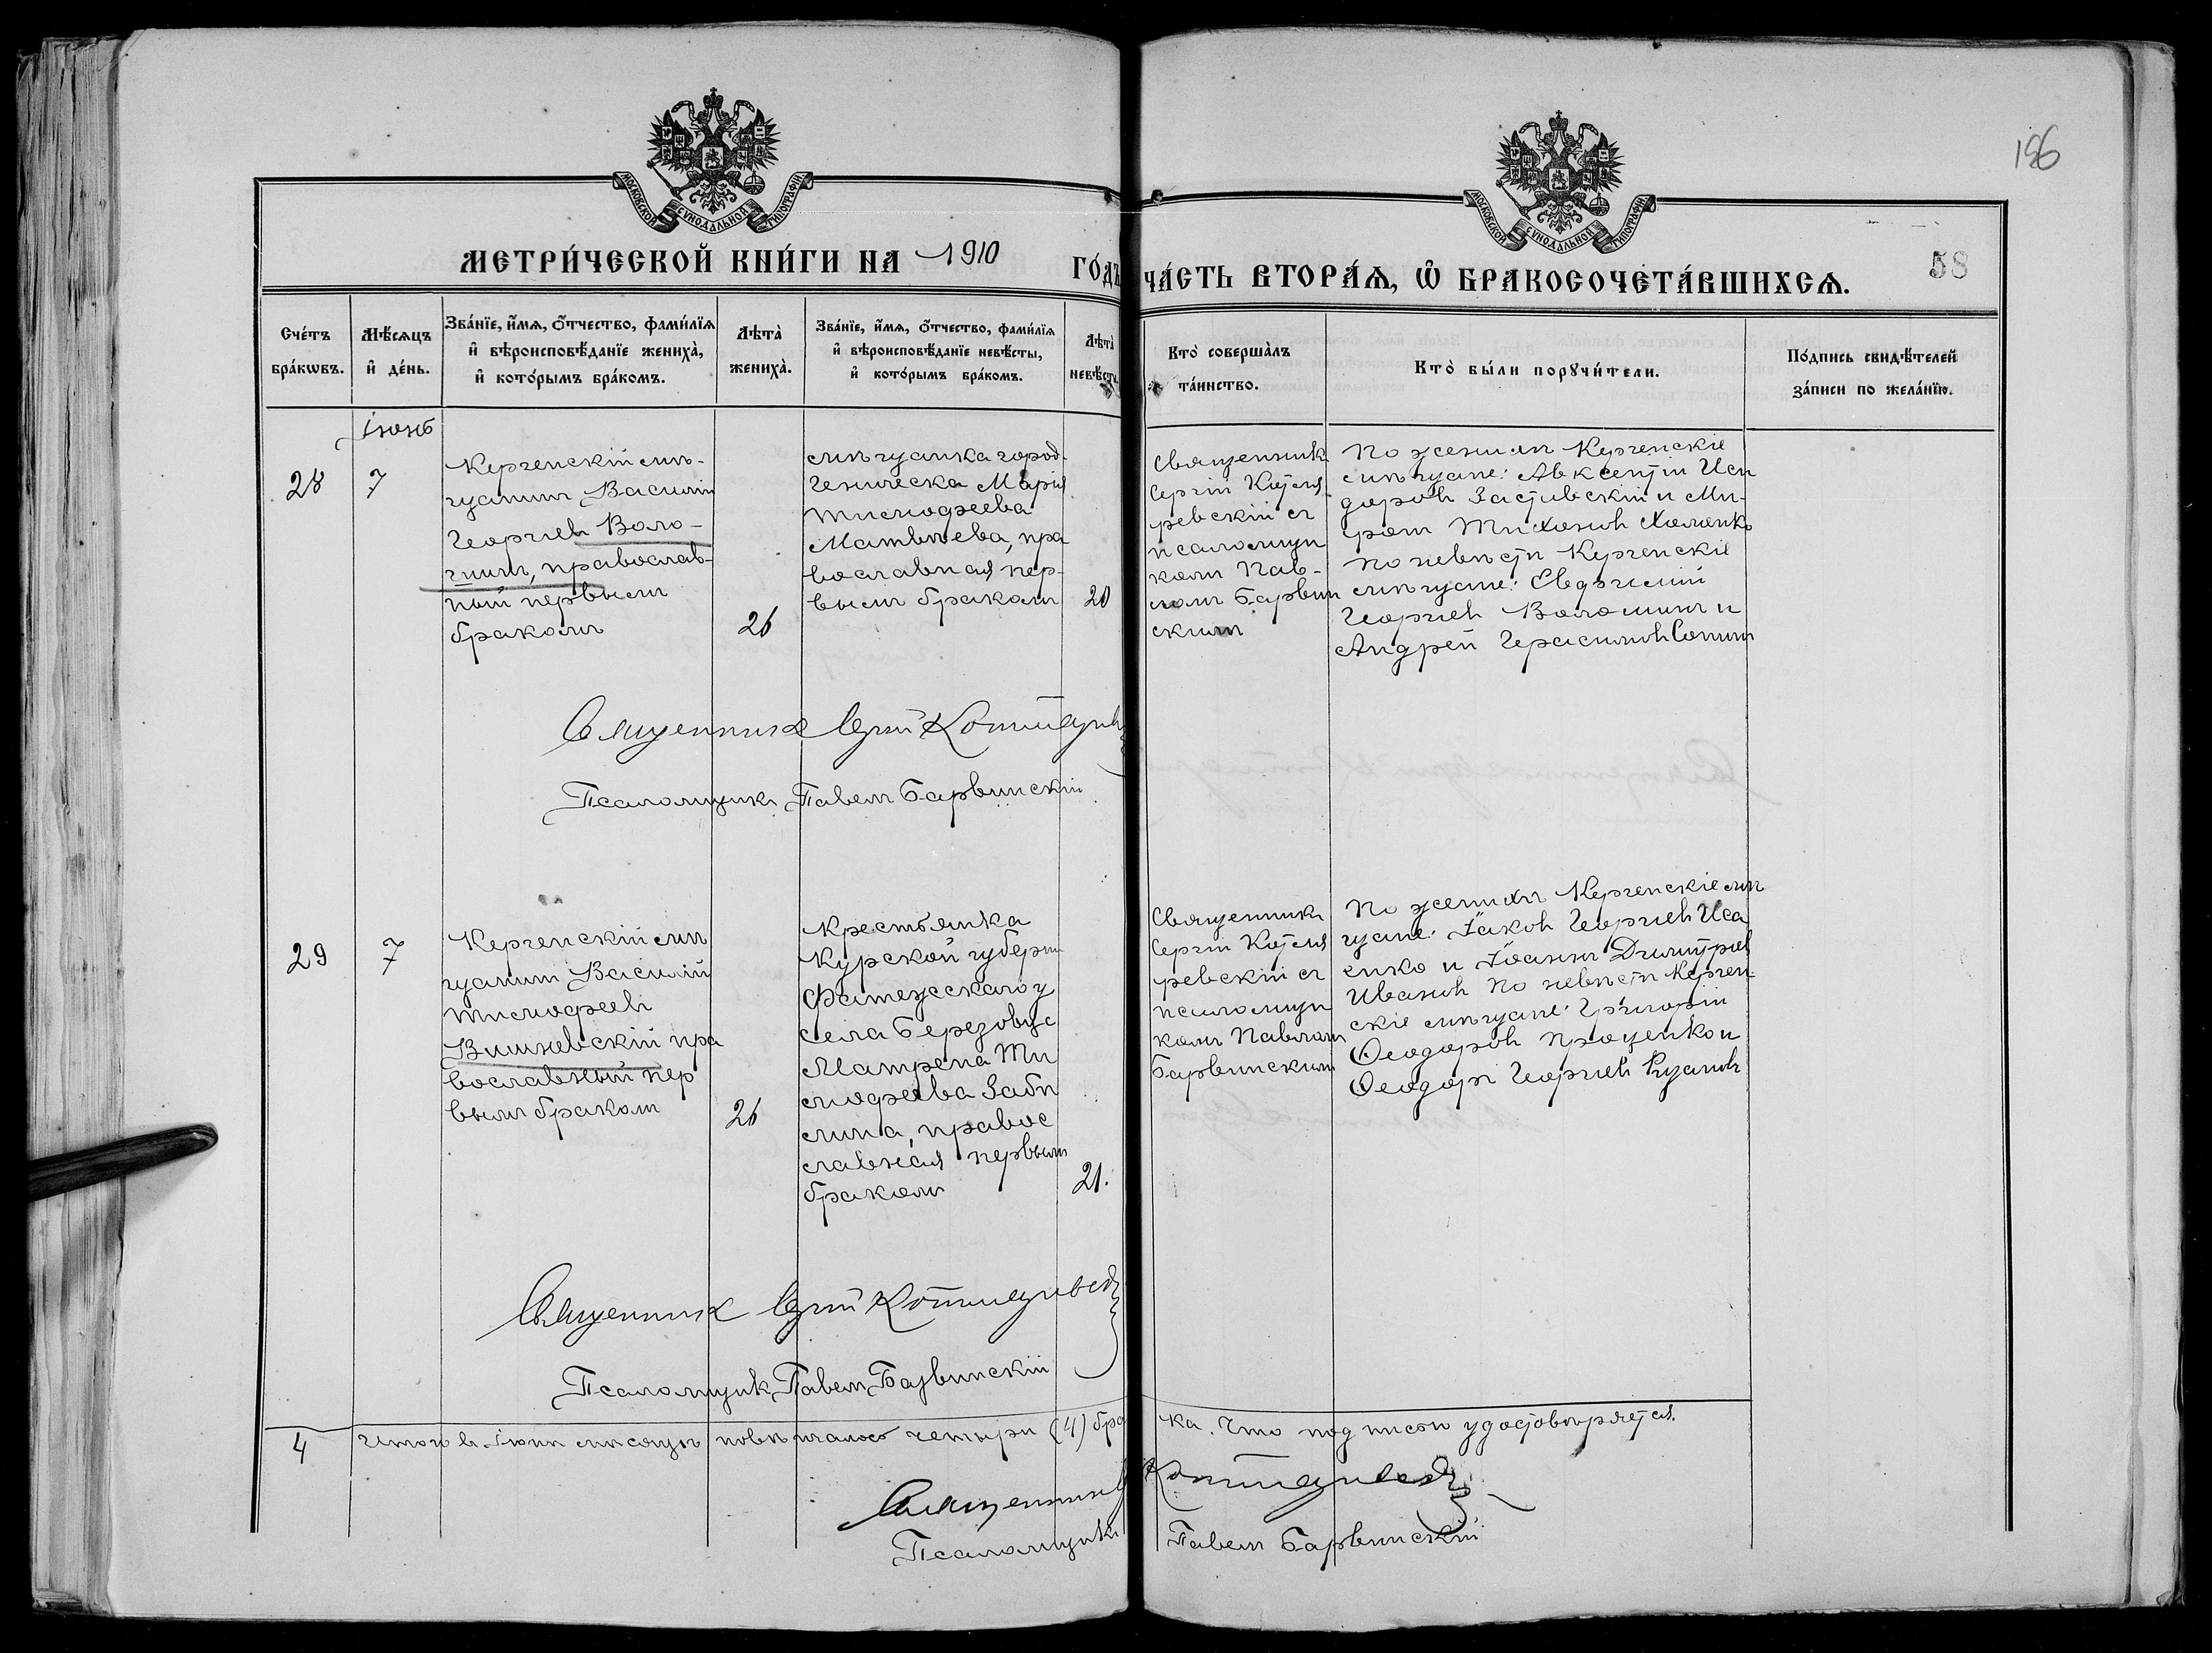 186
МОСКОВСКОЙ СѴНОДАЛЬНОЙ ТИПОГРАФІИ
МОСКОВСКОЙ СѴНОДАЛЬНОЙ ТИПОГРАФІИ
МЕТРИ́ЧЕСКОЙ КНИ́ГИ НА 1910 ГО́ДЪ
ЧА́СТЬ ВТОРА́Ѧ, Ѽ БРАКОСОЧЕТА́ВШИХСѦ.
58
Сче́тъ бра́кѡвъ.
Мѣ́сѧцъ и҆ де́нь.
Зва́нїе, и҆́мѧ, ѻ҆́тчество, фами́лїѧ и҆ вѣроисповѣ́данїе жениха̀, и҆ кото́рымъ бра́комъ.
Лѣта̀ жениха̀.
Зва́нїе, и҆́мѧ, ѻ҆́тчество, фами́лїѧ и҆ вѣроисповѣ́данїе невѣ́сты, и҆ кото́рымъ бра́комъ.
Лѣта̀ невѣ́сты.
Кто̀ соверша́лъ та́инство.
Кто̀ бы́ли порꙋчи́тели.
По́дпись свидѣ́телей за́писи по жела́нїю.
Іюнь
28
7
Керченскій мѣ-
щанинъ Василій
Георгіевъ Воло-
шинъ, православ-
ный первымъ
бракомъ
26
мѣщанка город.
Геническа Марія
Тимофеева
Матвѣева, пра
вославная пер-
вымъ бракомъ
20
Священникъ
Сергій Котля
ревскій съ
псаломщи
комъ Пав-
ломъ Барвин
скимъ
По женихѣ Керченскіе
мѣщане: Авксентій Иси
доровъ Заставскій и Ми-
ронъ Тихоновъ
По невѣстѣ Керченскіе
мѣщане: Евфимій
Георгіевъ Волошинъ и
Андрей Герасимовъ
Священникъ Сергій Котляревскій
Псаломщикъ Павелъ Барвинскій
29
7
Керченскій мѣ
щанинъ Василій
Тимофеевъ
Вишневскій пра
вославный пер
вымъ бракомъ
26
Крестьянка
Курской губерніи
Фатежскаго у
села Березовце
Матрена Ти
мофеева Забѣ
лина, правос
славная первымъ
бракомъ
21.
Священникъ
Сергій Котля
ревскій съ
псаломщи
комъ Павломъ
Барвинскимъ
По женихѣ Керченскіе мѣ
щане: Іаковъ Георгіевъ Иса
енко и Іоаннъ Димитріев
Ивановъ По невѣстѣ Керчен-
скіе мѣщане: Григорій
Ѳеодоровъ Проценко и
Ѳеодоръ Георгіевъ
Священникъ Сергій Котляревскій
Псаломщикъ Павелъ Барвинскій
4 Итого въ Іюнѣ мѣсяцѣ повѣнчалось четыри (4) бра ка. Что подписью удостовѣряется.
Священникъ Котляревскій
Псаломщикъ Павелъ Барвинскій